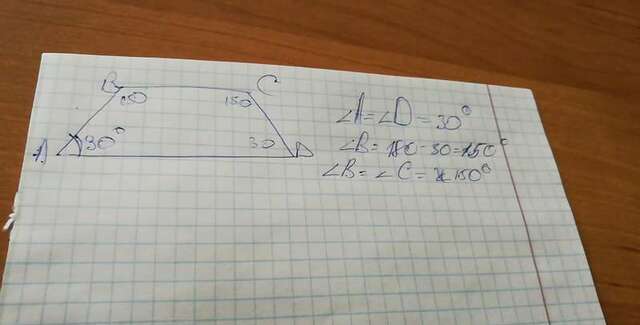 B C
150 150
A 30° 30 D
∠A = ∠D = 30°
∠B = 180 - 30 = 150°
∠B = ∠C = 150°